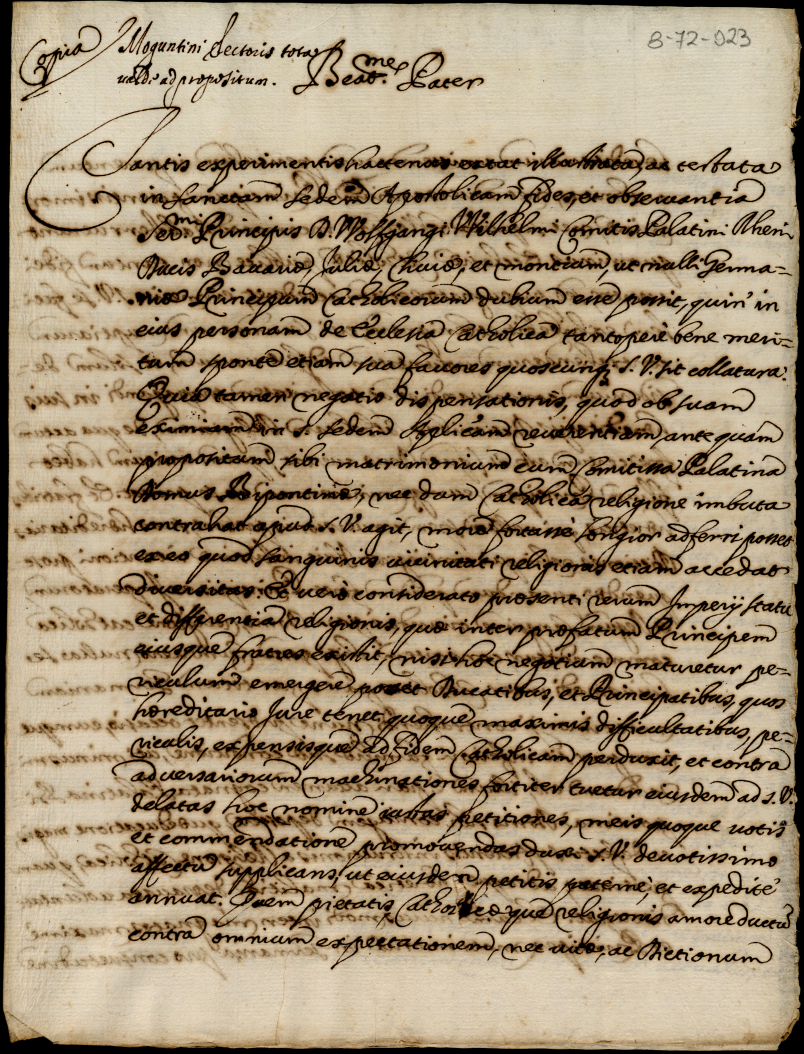 8-72-023
Copia Moguntini Electoris tota
valde ad propositum. Beat.me Pater
Tantis experimentis hactenus extat illustrata, ac testata
in Sanctam Sedem Apostolicam fides, et observantia
Ser.mi Principis D. Wolffgangi Wilhelmi Comitis Palatini Rheni
Ducis Bavariæ, Juliæ, Cliviæ, et montium, ut nulli Germa-
niæ Principum Catholicorum dubium esse possit, quin in
eius personam de Ecclesia Catholica tantopere bene meri-
tam sponte etiam sua favores quoscunq; S. V. sit collatura.
Quia tamen negotio dispensationis, quod ob suam
eximiam in S. Sedem Aplicam reverentiam, antequam
propositum sibi matrimonium cum Comitissa Palatina
Domus Bipontinæ, nec dum Catholica religione imbuta
contrahat apud S. V. agit, mora fortasse longior adferri posset
ex eo quod sanguinis vicinitati religionis etiam accedat
diversitas: Et vero considerato præsenti rerum Imperij statu
et differentia religionis, quæ inter præfatum Principem
eiusque fratres existit, nisi hoc negotium maturetur pe-
riculum emergere posset Ducatibus, et Principatibus, quos
hæreditario Jure tenet, quoque maximis difficultatibus, pe-
riculis, expensisque ad fidem Catholicam perduxit, et contra
adversariorum machinationes fortiter tuetur eiusdem ad S. V.
delatas hoc nomine petitiones, meis quoque votis
et commendatione promovendas duxi S. V. devotissimo
affectu supplicans, ut eiusdem petitis paterne, et expedite
annuat. Quem pietatis, Catholicæque religionis amore ductu
contra omnium expectationem, nec vitæ, ac Ditionum